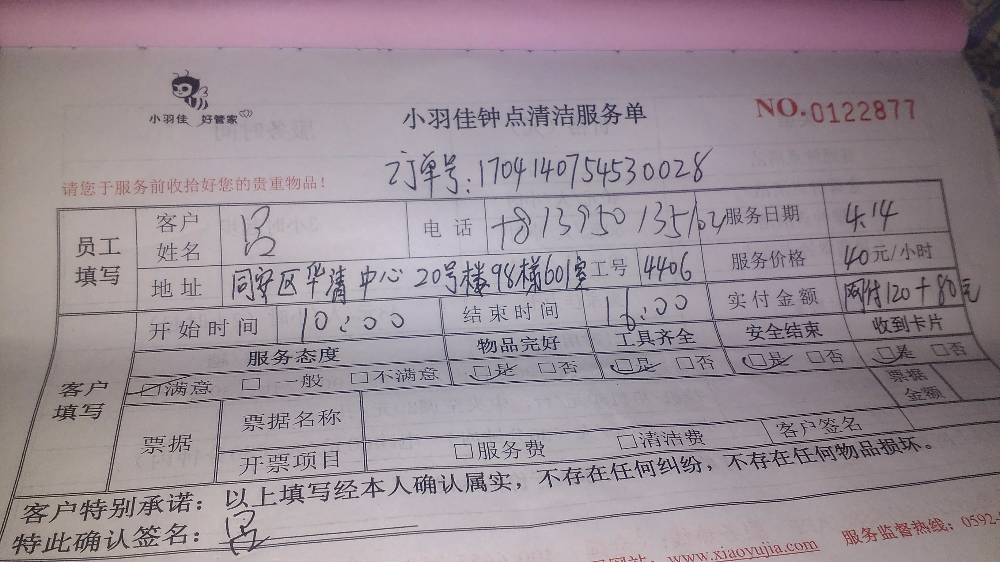 小羽佳 好管家
小羽佳钟点清洁服务单
NO.0122877
订单号:17041407545530028
请您于服务前收拾好您的贵重物品！
员工填写
客户姓名 电话 服务日期 4.14
地址 同安区华清中心20号楼98梯601室 工号 4406 服务价格 40元/小时
开始时间 10:00 结束时间 16:00 实付金额 网付120+80元
客户填写
服务态度 物品完好 工具齐全 安全结束 收到卡片
☑满意 □一般 □不满意 ☑是 □否 ☑是 □否 ☑是 □否 ☑是 □否
票据 票据名称 票据金额
开票项目 □服务费 □清洁费 客户签名
客户特别承诺：以上填写经本人确认属实，不存在任何纠纷，不存在任何物品损坏。
特此确认签名：
网站：www.xiaoyujia.com 服务监督热线：0592-